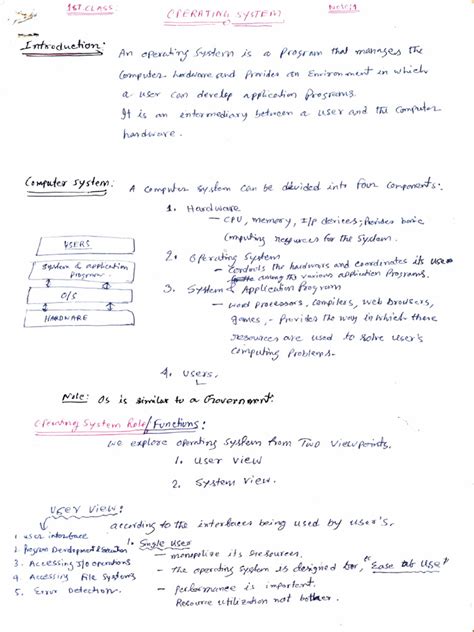 1ST CLASS
OPERATING SYSTEM
Introduction:
An operating System is a Program that manages the
Computer hardware and Provides an Environment in which
a user can develop application Programs.
It is an intermediary between a user and the Computer
hardware.
Computer System:
A Computer System can be divided into four Components:
1. Hardware
— CPU, memory, I/p devices; Provides basic
Computing resources for the System.
2. Operating System
— Controls the hardware and coordinates its use
among the various application Programs.
3. System & Application Program
— Word processors, Compilers, Web browsers,
games, - Provides the way in which these
resources are used to solve user's
Computing Problems.
4. Users.
USERS
System & application
Programs
O/S
HARDWARE
Note: Os is similar to a Government.
Operating System Role/Functions:
We explore operating System from Two Viewpoints.
1. User View
2. System View.
User View:
according to the interfaces being used by user's.
1 user interface
2. Program Development & Execution
3. Accessing I/o operations
4. Accessing File Systems
5. Error Detection.
1. Single user
— monopolize its resources.
— the operating System is designed for, "Ease of Use"
— performance is important.
Resource utilization not bother.